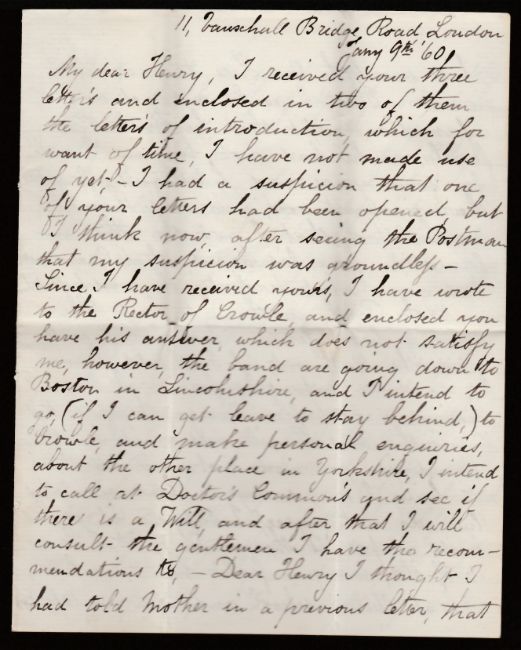 11, Vauxhall Bridge Road London
Jany 9th '60
My dear Henry, I received your three
letter's and enclosed in two of them
the letter's of introduction, which for
want of time, I have not made use
of yet, - I had a suspicion that one
of your letters had been opened, but
I think now, after seeing the Postman
that my suspicion was groundless -
Since I have received yours, I have wrote
to the Rector of Crowle and enclosed you
have his answer which does not satisfy
me, however, the band are going down to
Boston in Lincolnshire, and I intend to
go, (if I can get leave to stay behind,) to
Crowle, and make personal enquiries,
about the other place in Yorkshire, I intend
to call at Doctor's Common's and see if
there is a Will, and after that I will
consult the gentlemen I have the recom-
mendations to, - Dear Henry I thought I
had told Mother in a previous letter, that